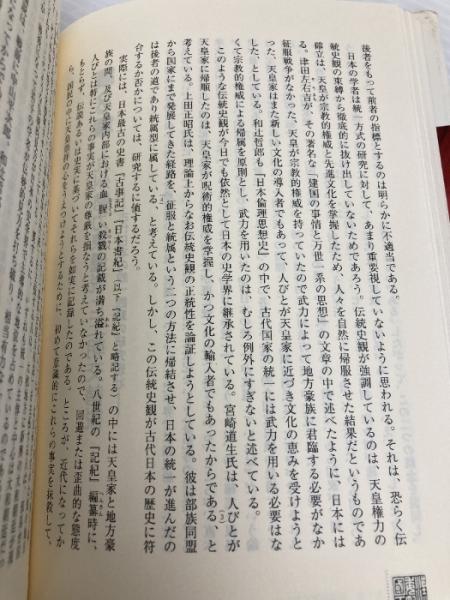 後者をもって前者の指標とするのは明らかに不適当である。
日本の学者は統一方式の研究に対して、あまり重要視していないように思われる。それは、恐らく伝
統史観の束縛から徹底的に抜け出していないためであろう。伝統史観が強調しているのは、天皇権力の
確立は、天皇が宗教的権威と先進文化を掌握したため、人々を自然に帰服させた結果だというものであ
る。津田左右吉が、その著名な「建国の事情と万世一系の思想」の文章の中で述べたように、日本には
征服戦争がなかった、天皇が宗教的権威を持っていたので武力によって地方豪族に君臨する必要がなか
った、天皇家はまた新しい文化の導入者でもあって、人びとが天皇家に近づき文化の恵みを受けようと
した、としている。和辻哲郎も『日本倫理思想史』の中で、古代国家の統一には武力を用いる必要はな
くて宗教的権威による帰属を原則とし、武力を用いたのは、むしろ例外にすぎないと述べている。
このような伝統史観が今日でも依然として日本の史学界に継承されている。宮崎道生氏は、人びとが
天皇家に帰順したのは、天皇家が呪術的権威を掌握し、かつ文化の輸入者でもあったからである、と
考えている。上田正昭氏は、理論上からなお伝統史観の正統性を論証しようとしている。彼は部族同盟
から国家にまで発展してきた経路を、征服と統属という二つの方法に帰結させ、日本の統一が進んだの
は後者の道であり統属型に属している、と考えている。しかし、この伝統史観が古代日本の歴史に符
合するか否かについては、研究するに値するだろう。
実際には、日本最古の史書『古事記』『日本書紀』(以下『記紀』と略記する)の中には天皇家と地方豪
族の間、及び天皇家内部における血腥い殺戮の記載が満ち溢れている。八世紀の『記紀』編纂時に、
人びとは特にこれらの事実が天皇家の尊厳を損なうと考えていなかったので、回避または歪曲的な態度
もとらず、伝説あるいは史実に基づいてそれらを如実に記録したのである。ところが、近代になってか
ら、国民の中に天皇崇拝の心をうえつけようとするために、初めて意識的にこれらの事実を抹殺して、